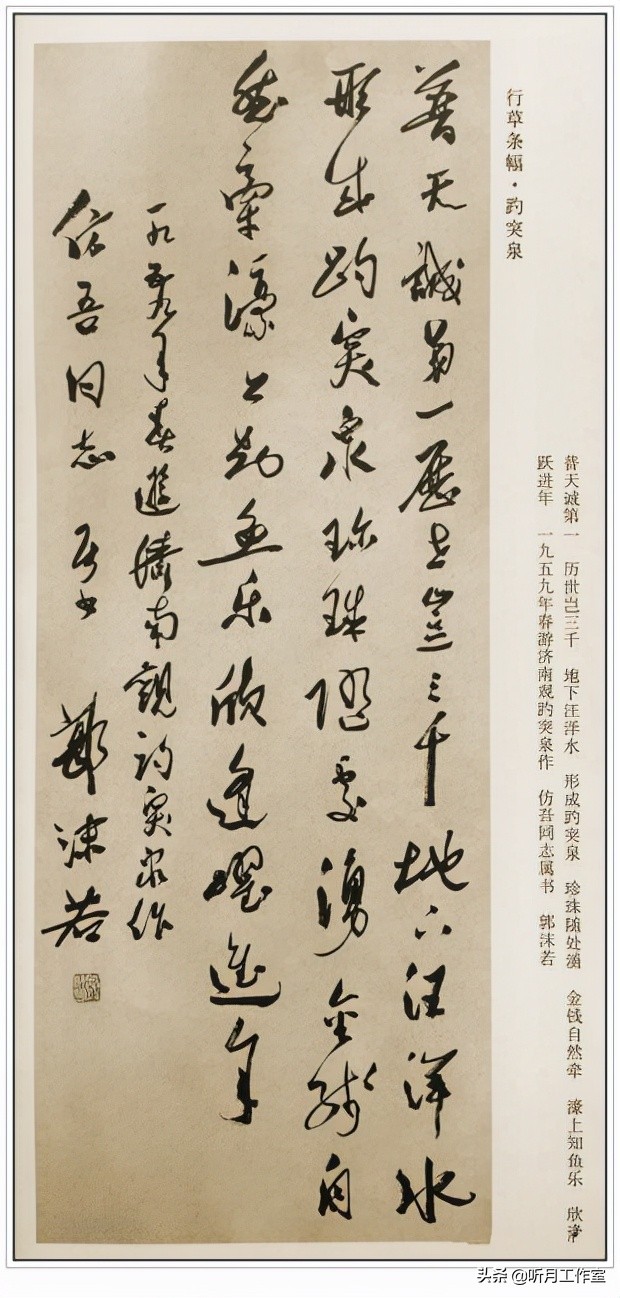 行草条幅·趵突泉
普天诚第一 历世岂三千 地下汪洋水 形成趵突泉 珍珠随处涌 金线自然牵 濠上知鱼乐 欣逢
跃进年 一九五九年春游济南观趵突泉作 仿吾同志属书 郭沫若
普天誠第一歷世豈三千地下汪洋水
形成趵突泉珍珠隨處湧金綫自
然牽濠上知魚樂欣逢躍進年
一九五九年春遊濟南觀趵突泉作
仿吾同志属书 郭沫若
头条 @听月工作室